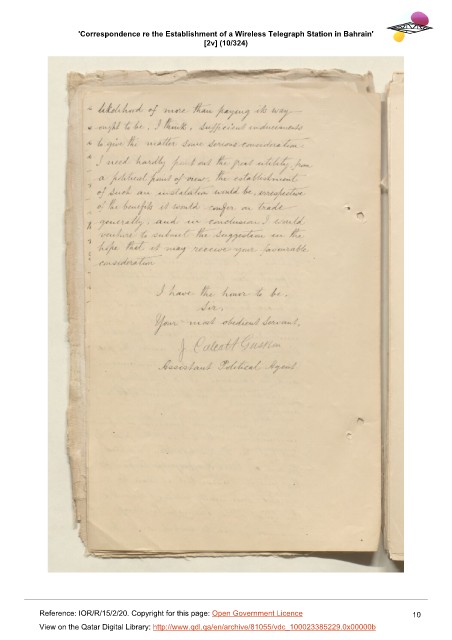 'Correspondence re the Establishment of a Wireless Telegraph Station in Bahrain'
[2v] (10/324)
likelihood of more than paying its way
ought to be, I think, sufficient inducements
to give the matter some serious consideration
I need hardly point out the great utility, from
a political point of view, the establishment
of such an installation would be, irrespective
of the benefits it would confer on trade
generally, and in conclusion I would
venture to submit the suggestion in the
hope that it may receive your favourable
consideration
I have the honor to be,
Sir,
Your most obedient servant,
J Calcott Gaskin
Assistant Political Agent.
Reference: IOR/R/15/2/20. Copyright for this page: Open Government Licence
View on the Qatar Digital Library: http://www.qdl.qa/en/archive/81055/vdc_100023385229.0x00000b
10